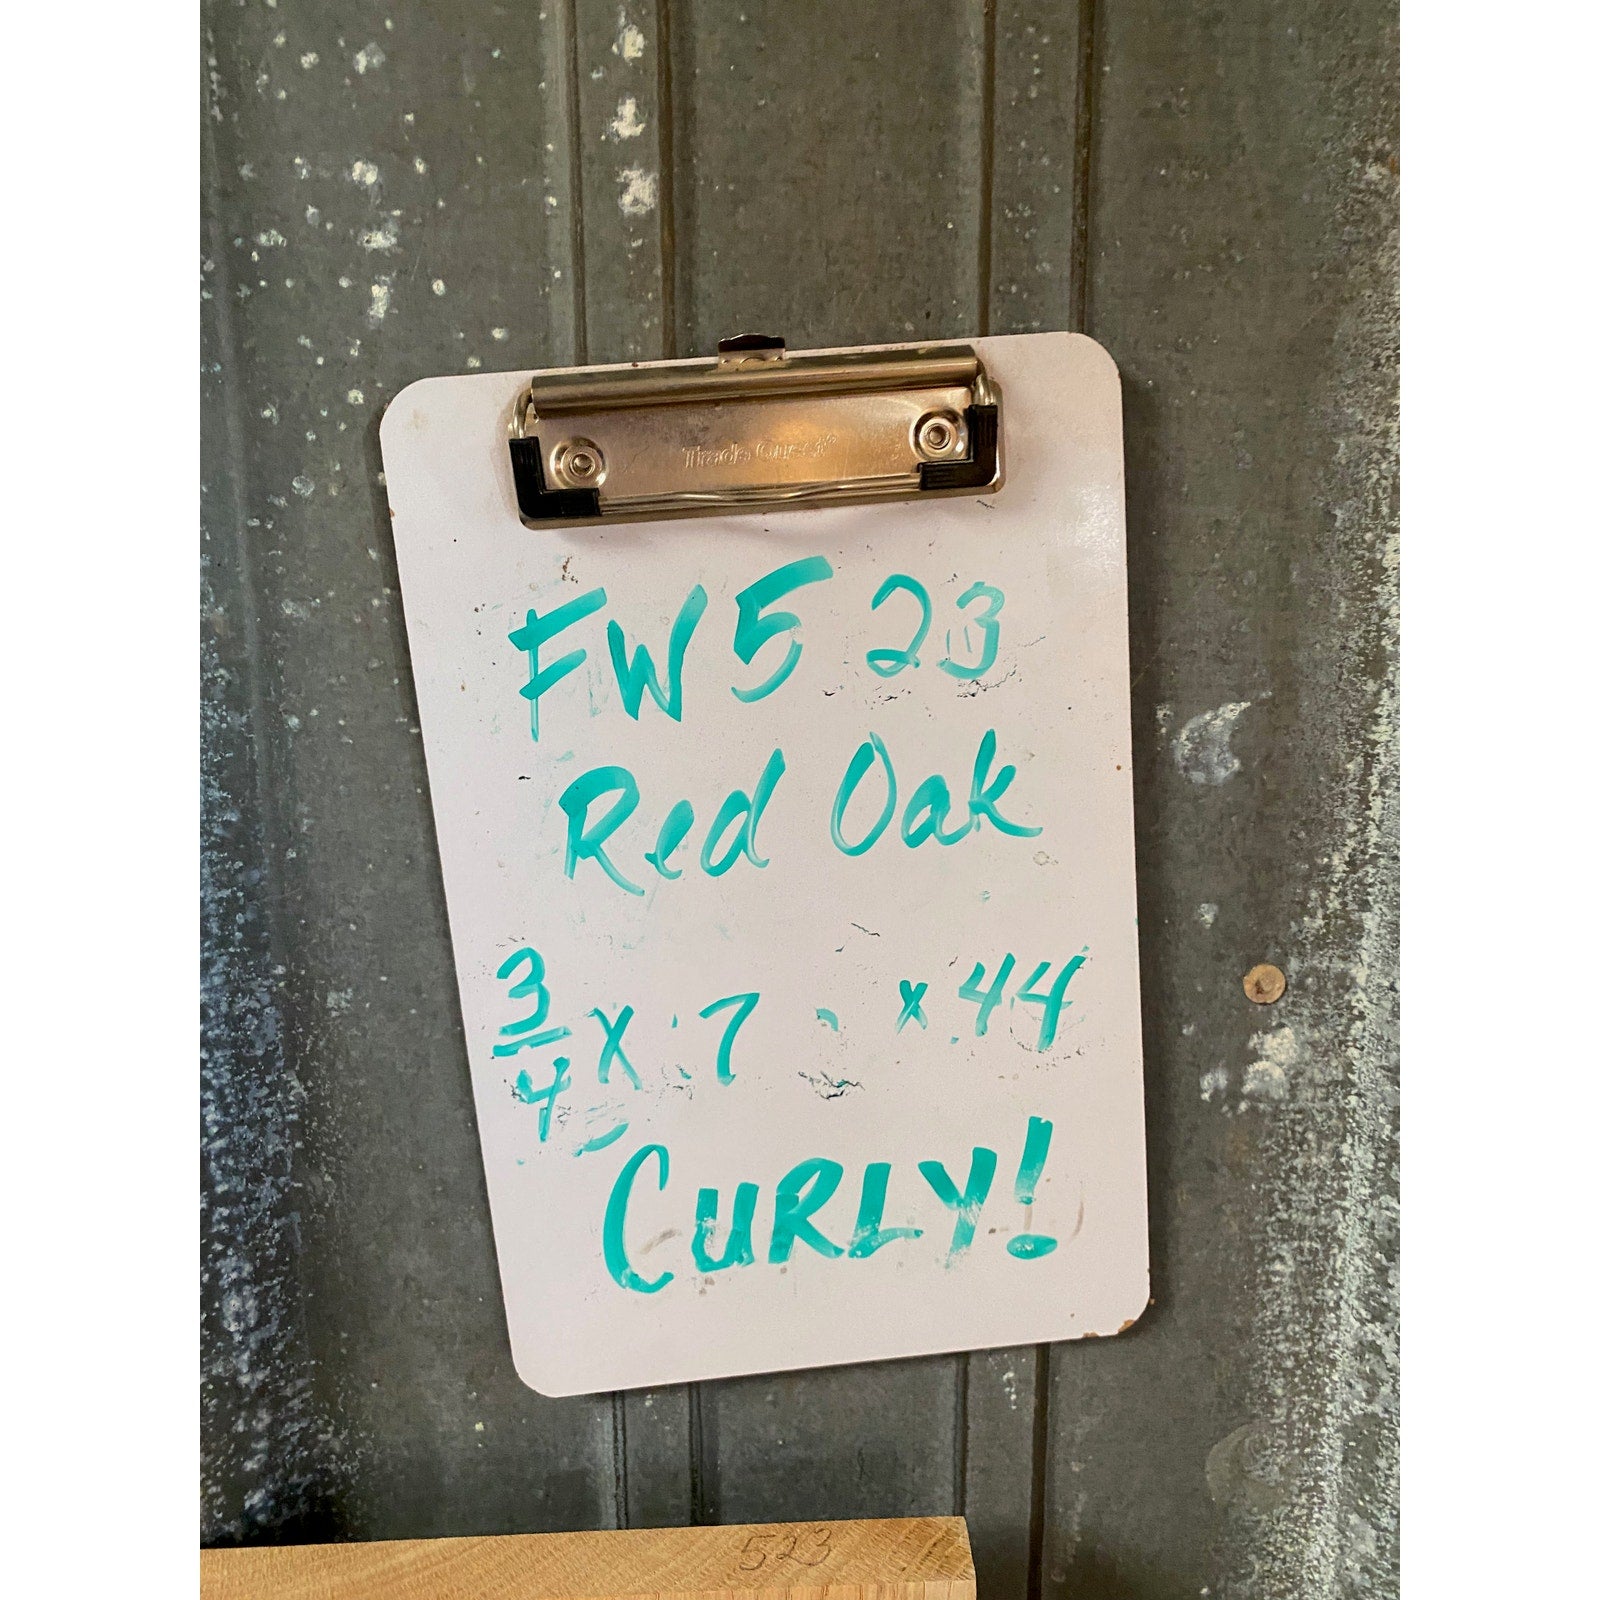 Trade Quest®
FW523
Red Oak
3/4 x 7 x 44
CURLY!
523